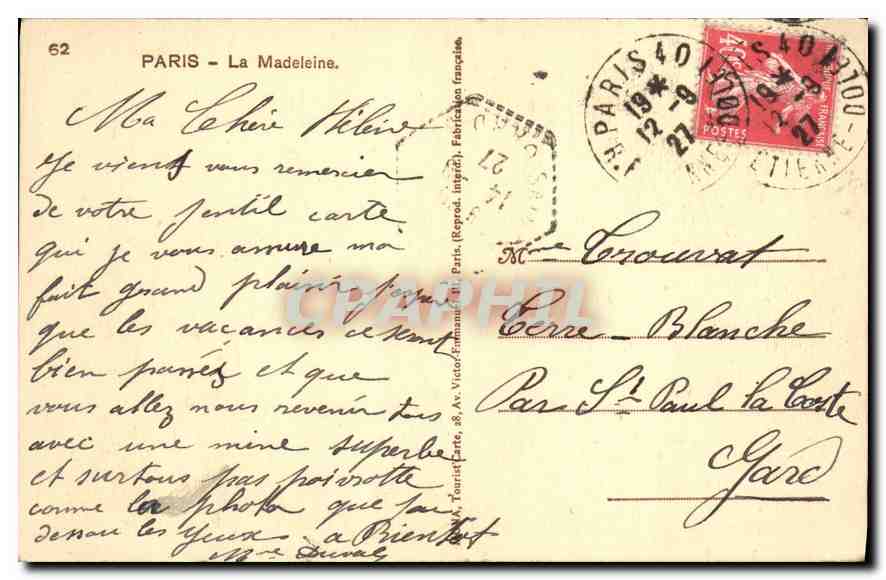 62
PARIS - La Madeleine.
Ma Chère Hélène
Je viens vous remercier
de votre gentil carte
qui je vous assure moi
fait grand plaisir
que les vacances ce sont
bien passées et que
vous allez nous revenir tous
avec une mine superbe
et surtous pas
comme la photo que j'ai
dessou les yeux a Bientot
Mme Duval
Tourist'Carte, 28, Av. Victor-Emmanuel III, Paris. (Reprod. interd.). Fabrication française.
PARIS 40
19 * -9
12 27
R.F.
PARIS 40
19 * -9
12 27
ETIENNE-
40c
POSTES
14 - 8
27
Mme Crouvat
Terre-Blanche
Par St Paul la Coste
Gard
CPAPHIL